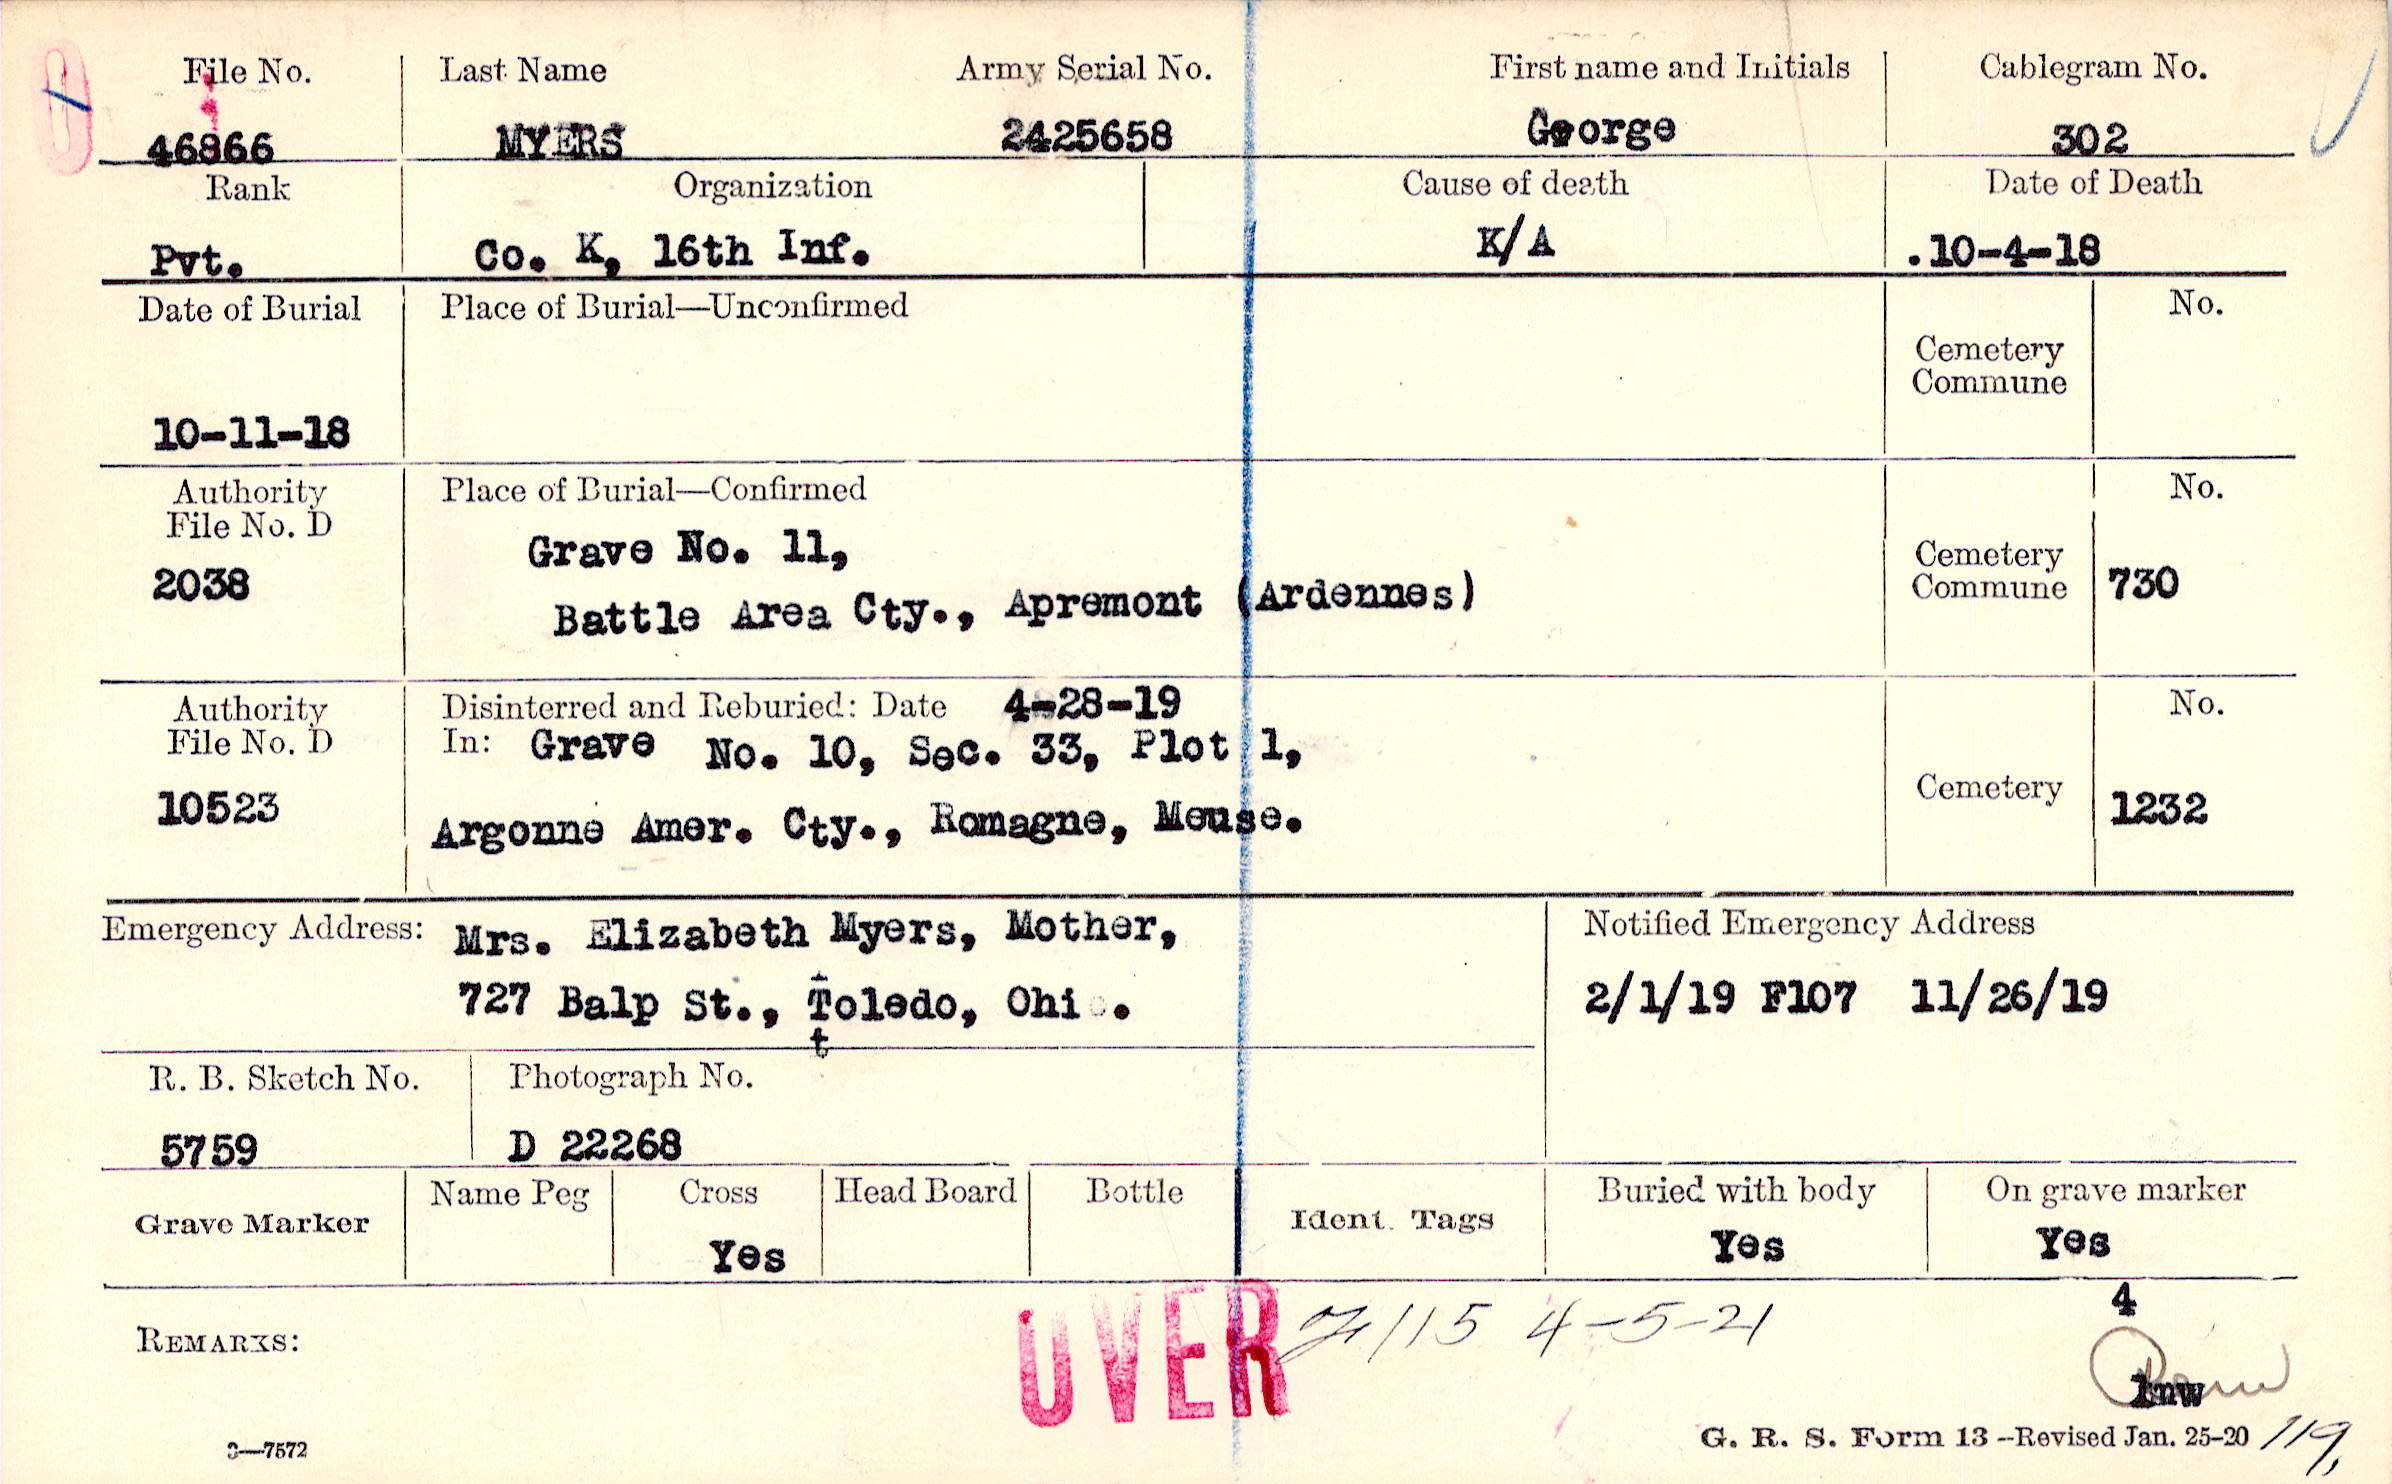 File No. Last Name Army Serial No. First name and Initials Cablegram No.
46866 MYERS 2425658 George 302
Rank Organization Cause of death Date of Death
Pvt. Co. K, 16th Inf. K/A .10-4-18
Date of Burial Place of Burial—Unconfirmed No.
Cemetery
Commune
10-11-18
Authority Place of Burial—Confirmed No.
File No. D
Grave No. 11,
2038 Cemetery
Commune 730
Battle Area Cty., Apremont (Ardennes)
Authority Disinterred and Reburied: Date 4-28-19 No.
File No. D In: Grave No. 10, Sec. 33, Plot 1,
10523 Cemetery 1232
Argonne Amer. Cty., Romagne, Meuse.
Emergency Address: Mrs. Elizabeth Myers, Mother, Notified Emergency Address
727 Balp St., Toledo, Ohio. 2/1/19 F107 11/26/19
t
R. B. Sketch No. Photograph No.
5759 D 22268
Grave Marker Name Peg Cross Head Board Bottle Ident. Tags Buried with body On grave marker
Yes Yes Yes
4
REMARKS: OVER 115 4-5-21
lnw
3—7572 G. R. S. Form 13—Revised Jan. 25-20 119,